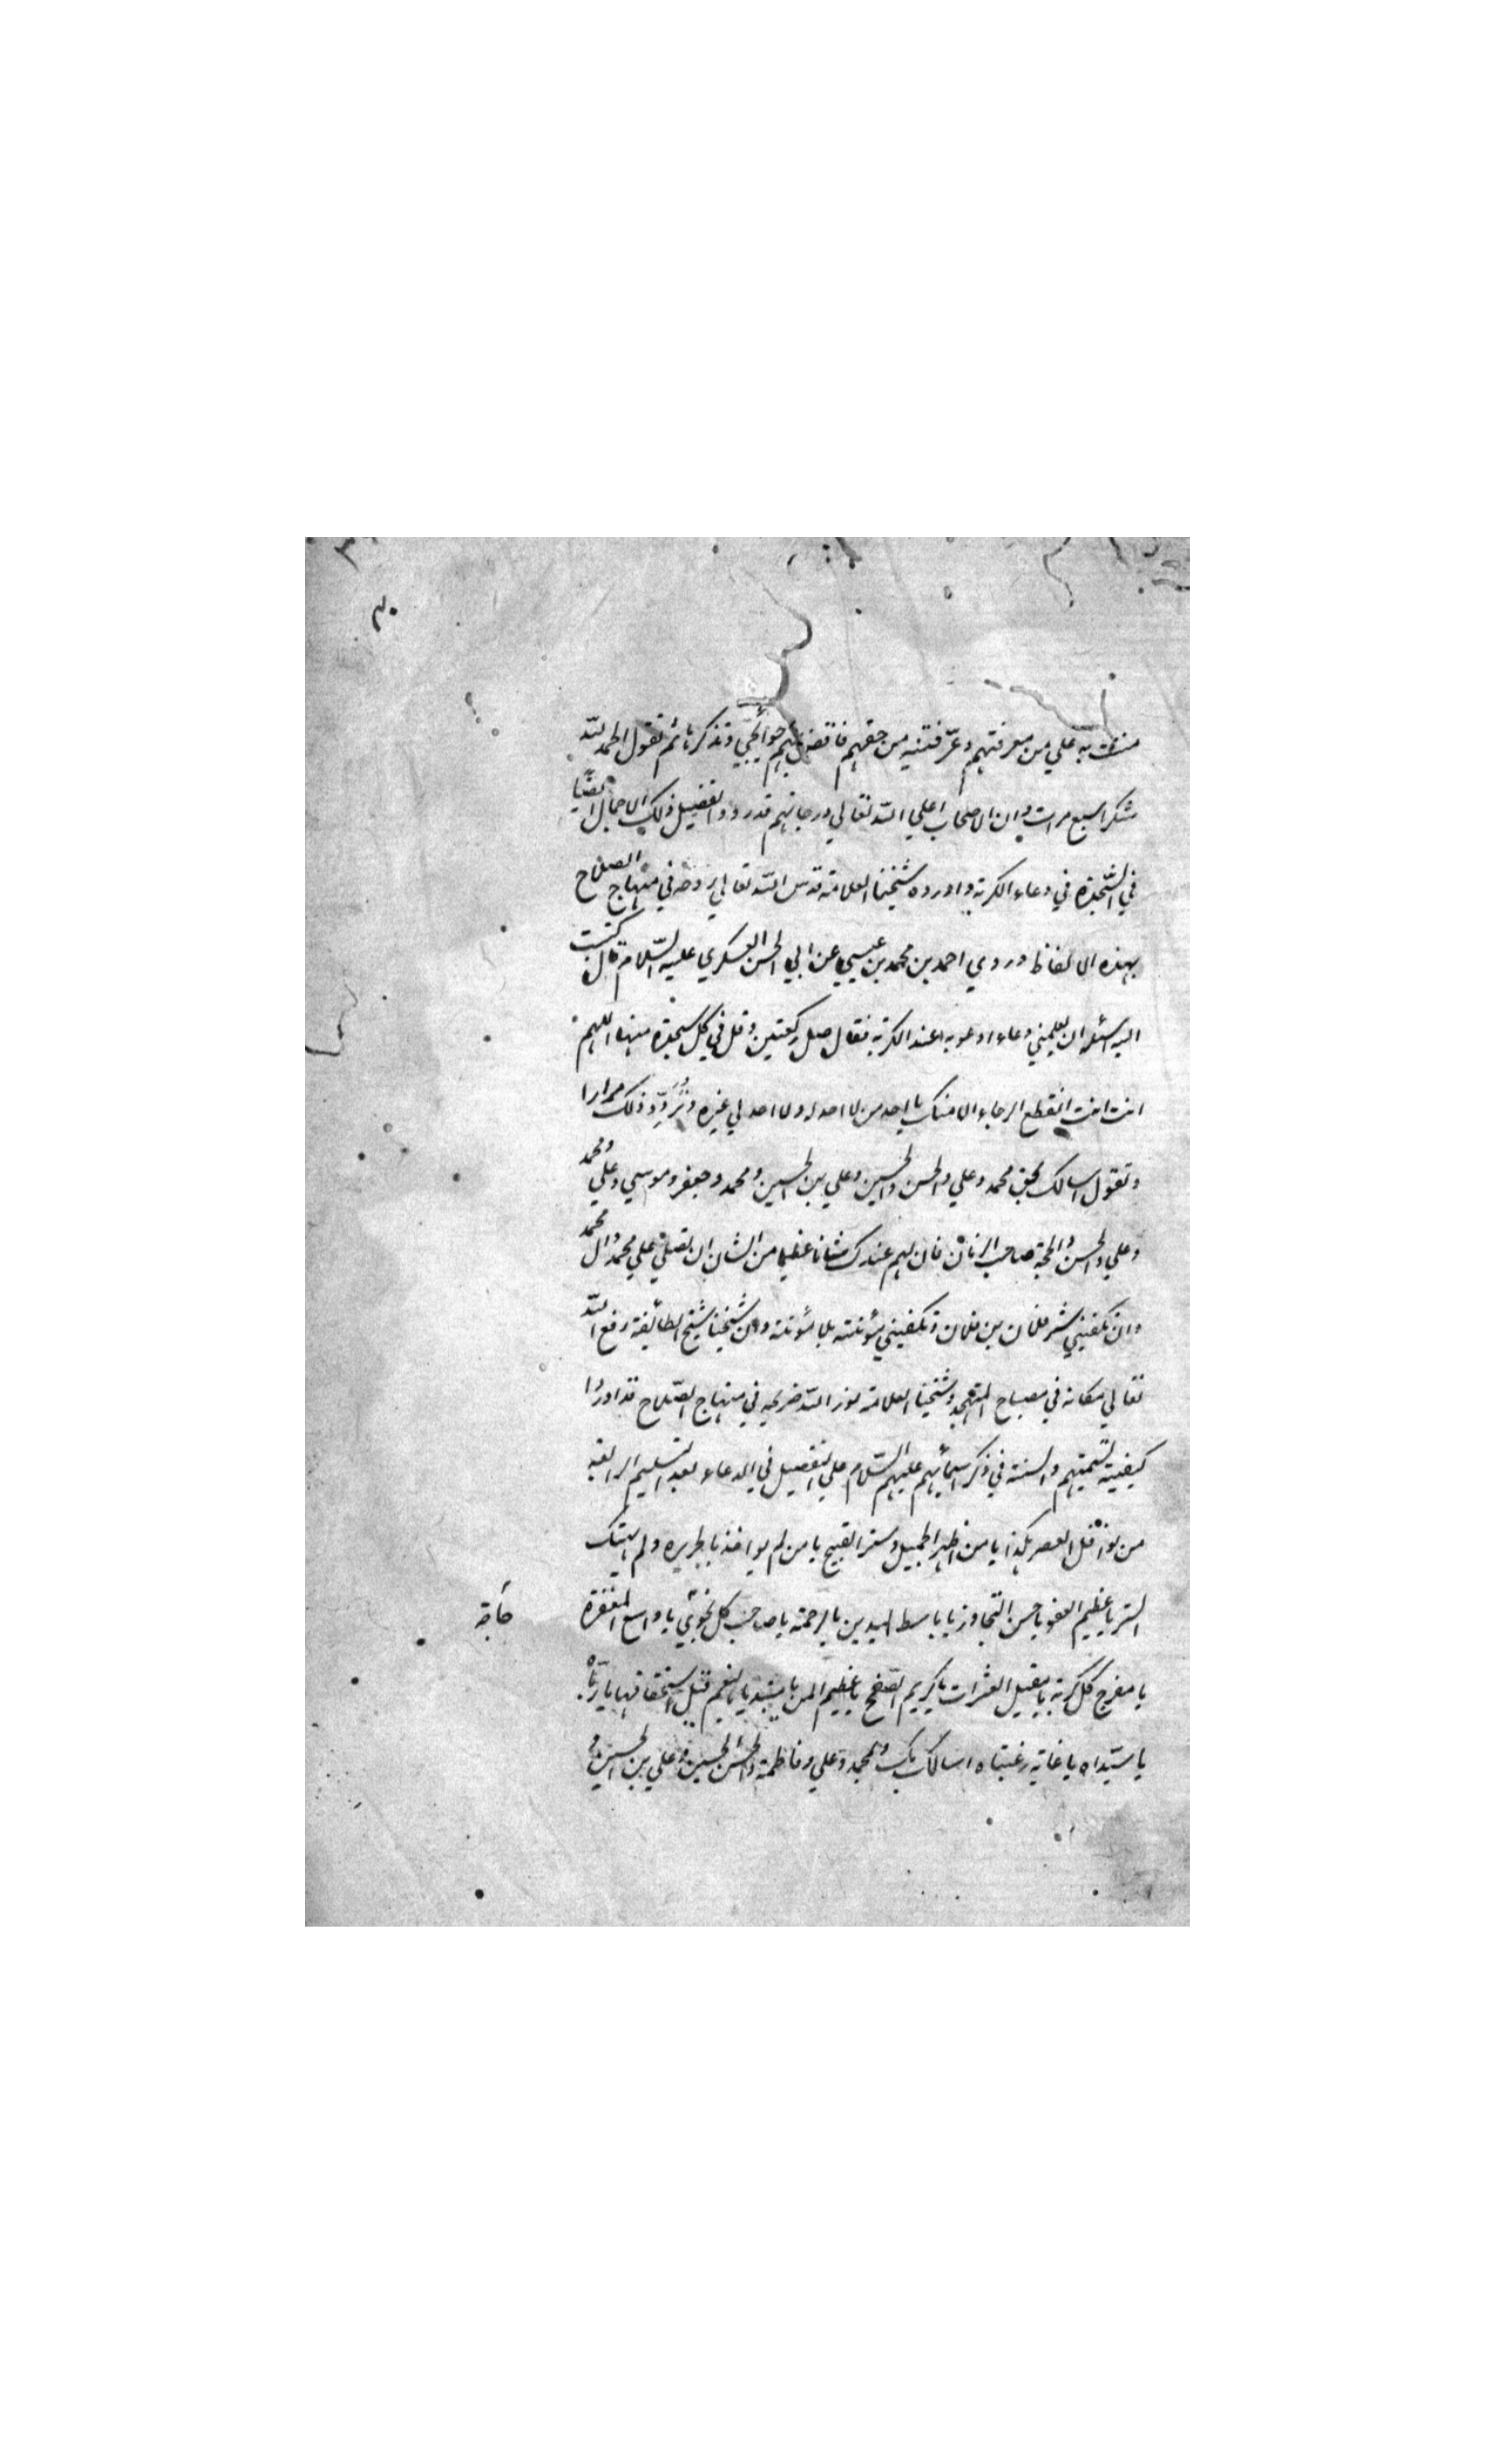 مننت به علي من معرفتهم وعرّفتنيه من حقهم فاقض بهم حوائجي وتذكرها ثم تقول الحمد لله
شكرا سبع مرات وان الاصحاب اعلي الله تعالي درجاتهم قد رووا تفضيل ذلك الاجمال ايضا
في السّجدة في دعاء الكربة واورده شيخنا العلامة قدس الله تعالي روحه في منهاج الصلاح
بهذه الالفاظ وروي احمد بن محمد بن عيسي عن ابي الحسن العسكري عليه السّلام قال كتبت
اليه اسئله ان يعلمني دعاء ادعو به عند الكربة فقال صل ركعتين وقل في كل سجدة منها اللهم
انت انت انقطع الرجاء الا منك يا احد من لا احد له ولا احد لي غيره وتُردّد ذلك مرارا
وتقول اسالك بحق محمد وعلي والحسن والحسين وعلي بن الحسين ومحمد وجعفر وموسي وعلي ومحمد
وعلي والحسن والحجة صاحب الزمان فان لهم عندك شانا عظيما من الشان ان تصلي علي محمد وال محمد
وان تكفيني شر فلان بن فلان وتكفيني مؤنته بلا مؤنة وان شيخنا شيخ الطائفة رفع الله
تعالي مكانه في مصباح المتهجد وشيخنا العلامة نور الله ضريحه في منهاج الصّلاح قد اوردا
كيفية تسميتهم والسنة في ذكر اسمائهم عليهم السّلام علي التفصيل في الدعاء بعد التسليم الرابعة
من نوافل العصر هكذا يا من اظهر الجميل وستر القبيح يا من لم يواخذ بالجريره ولم يهتك
الستر يا عظيم العفو يا حسن التجاوز يا باسط اليدين بالرحمة يا صاحب كل نجوي يا واسع المغفرة
حاجة
يا مفرج كل كربة يا مقيل العثرات يا كريم الصّفح يا عظيم المن يا مبتديا بالنعم قبل استحقاقها يا ربّاه
يا سيّداه يا غاية رغبتاه اسالك بك وبمحمد وعلي وفاطمة والحسن والحسين وعلي بن الحسين و